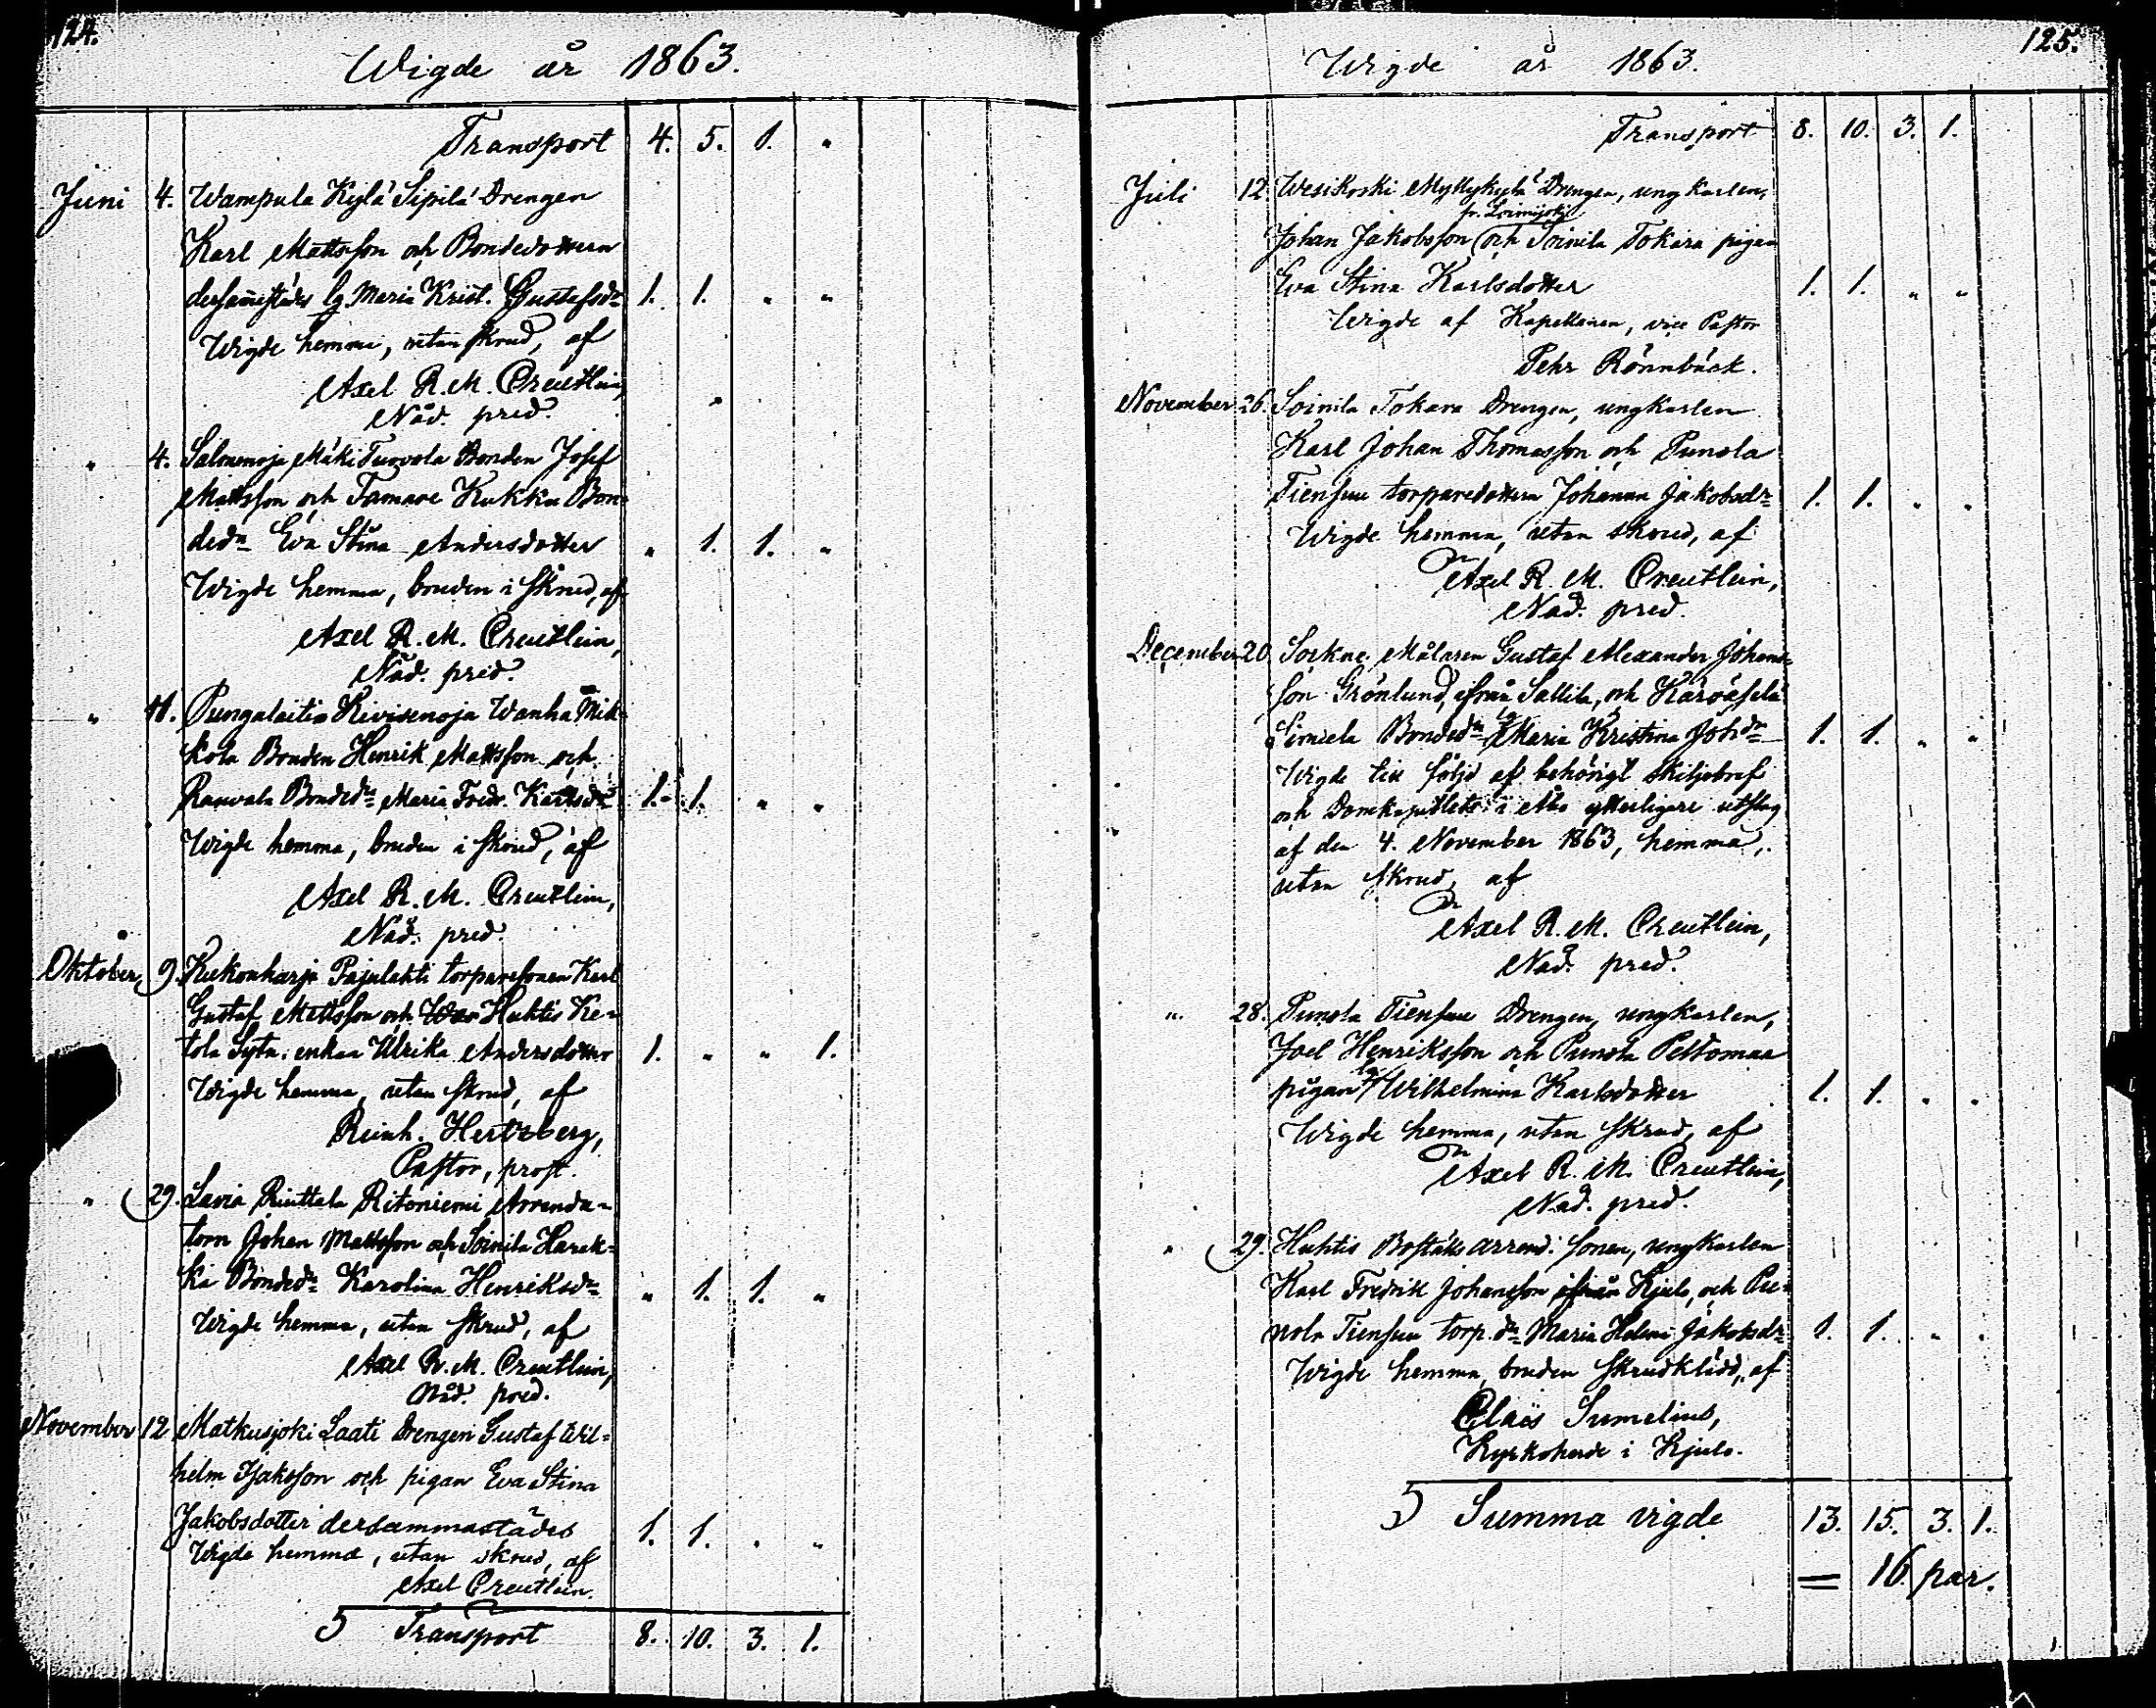 124.
Wigde år 1863.
Transport 4. 5. 1. "
Juni 4. Wampula Kylä Sipilä Drengen
Karl Mattsson och Bondedottern
dersammastädes Maria Krist. Gustafsdr 1. 1. " "
Wigde hemma, utan skrud, af
Axel R. M. Creutlein,
Nåd. pred.
" 4. Salomonoja Mäki Turvola Bonden Josef
Mattsson och Tamare Kukku Bon-
dedr Eva Stina Andersdotter " 1. 1. "
Wigde hemma, bruden i skrud, af
Axel R. M. Creutlein,
Nåd. pred.
" 11. Pungalaitio Kivisenoja Wanha Mik-
kola Bonden Henrik Mattsson och
Rauvola Bondedr Maria Fredr. Karlsdr 1. 1. " "
Wigde hemma, bruden i skrud, af
Axel R. M. Creutlein,
Nåd. pred.
Oktober 9. Kukonharja Pajulahti torparesonen Karl
Gustaf Mattsson och Huhtis Ke-
tola Sytn. enkan Ulrika Andersdotter 1. " " 1.
Wigde hemma, utan skrud, af
Reinh. Hertzberg,
Pastor, prost.
" 29. Lavia Riuttala Ritoniemi Arrenda-
torn Johan Mattsson och Soinila Harak-
ka Bondedr Karolina Henriksdr " 1. 1. "
Wigde hemma, utan skrud, af
Axel R. M. Creutlein,
Nåd. pred.
November 12 Matkusjoki Laati Drengen Gustaf Wil-
helm Isaksson och pigan Eva Stina
Jakobsdotter dersammastädes 1. 1. " "
Wigde hemma, utan skrud, af
Axel Creutlein.
5 Transport 8. 10. 3. 1.
125.
Wigde år 1863.
Transport 8. 10. 3. 1.
Juli 12. Wesikoski Myllykylä Drengen, ungkarlen,
fr. Loimijoki
Johan Jakobsson och Soinila Tokara pigan
Eva Stina Karlsdotter 1. 1. " "
Wigde af Kapellanen, vice Pastor
Pehr Rönnbäck.
November 26. Soinila Tokara Drengen, ungkarlen
Karl Johan Thomasson och Punola
Tiensuu torparedottern Johanna Jakobsdr 1. 1. " "
Wigde hemma, utan skrud, af
Axel R. M. Creutlein,
Nåd. pred.
December 20 Sockne Målaren Gustaf Alexander Johans-
son Grönlund, ifrån Sallila, och
Bondedr Maria Kristina Johdr 1. 1. " "
Wigde till följd af behörigt skiljobref
och Domkapitlets i Åbo ytterligare utslag
af den 4. November 1863, hemma,
utan skrud, af
Axel R. M. Creutlein,
Nåd. pred.
" 28. Punola Tiensuu Drengen, ungkarlen,
Joel Henriksson och Punola Peltomaa
pigan Wilhelmina Karlsdotter 1. 1. " "
Wigde hemma, utan skrud, af
Axel R. M. Creutlein,
Nåd. pred.
" 29. Huhtis Boställs arrend. sonen, ungkarlen
Karl Fredrik Johansson ifrån Kjulo, och Pu-
nola Tiensuu torp. dr Maria Helena Jakobsdr 1. 1. " "
Wigde hemma, bruden skrudklädd, af
Claës Sumelius,
Kyrkoherde i Kjulo.
5 Summa vigde 13. 15. 3. 1.
= 16 par.